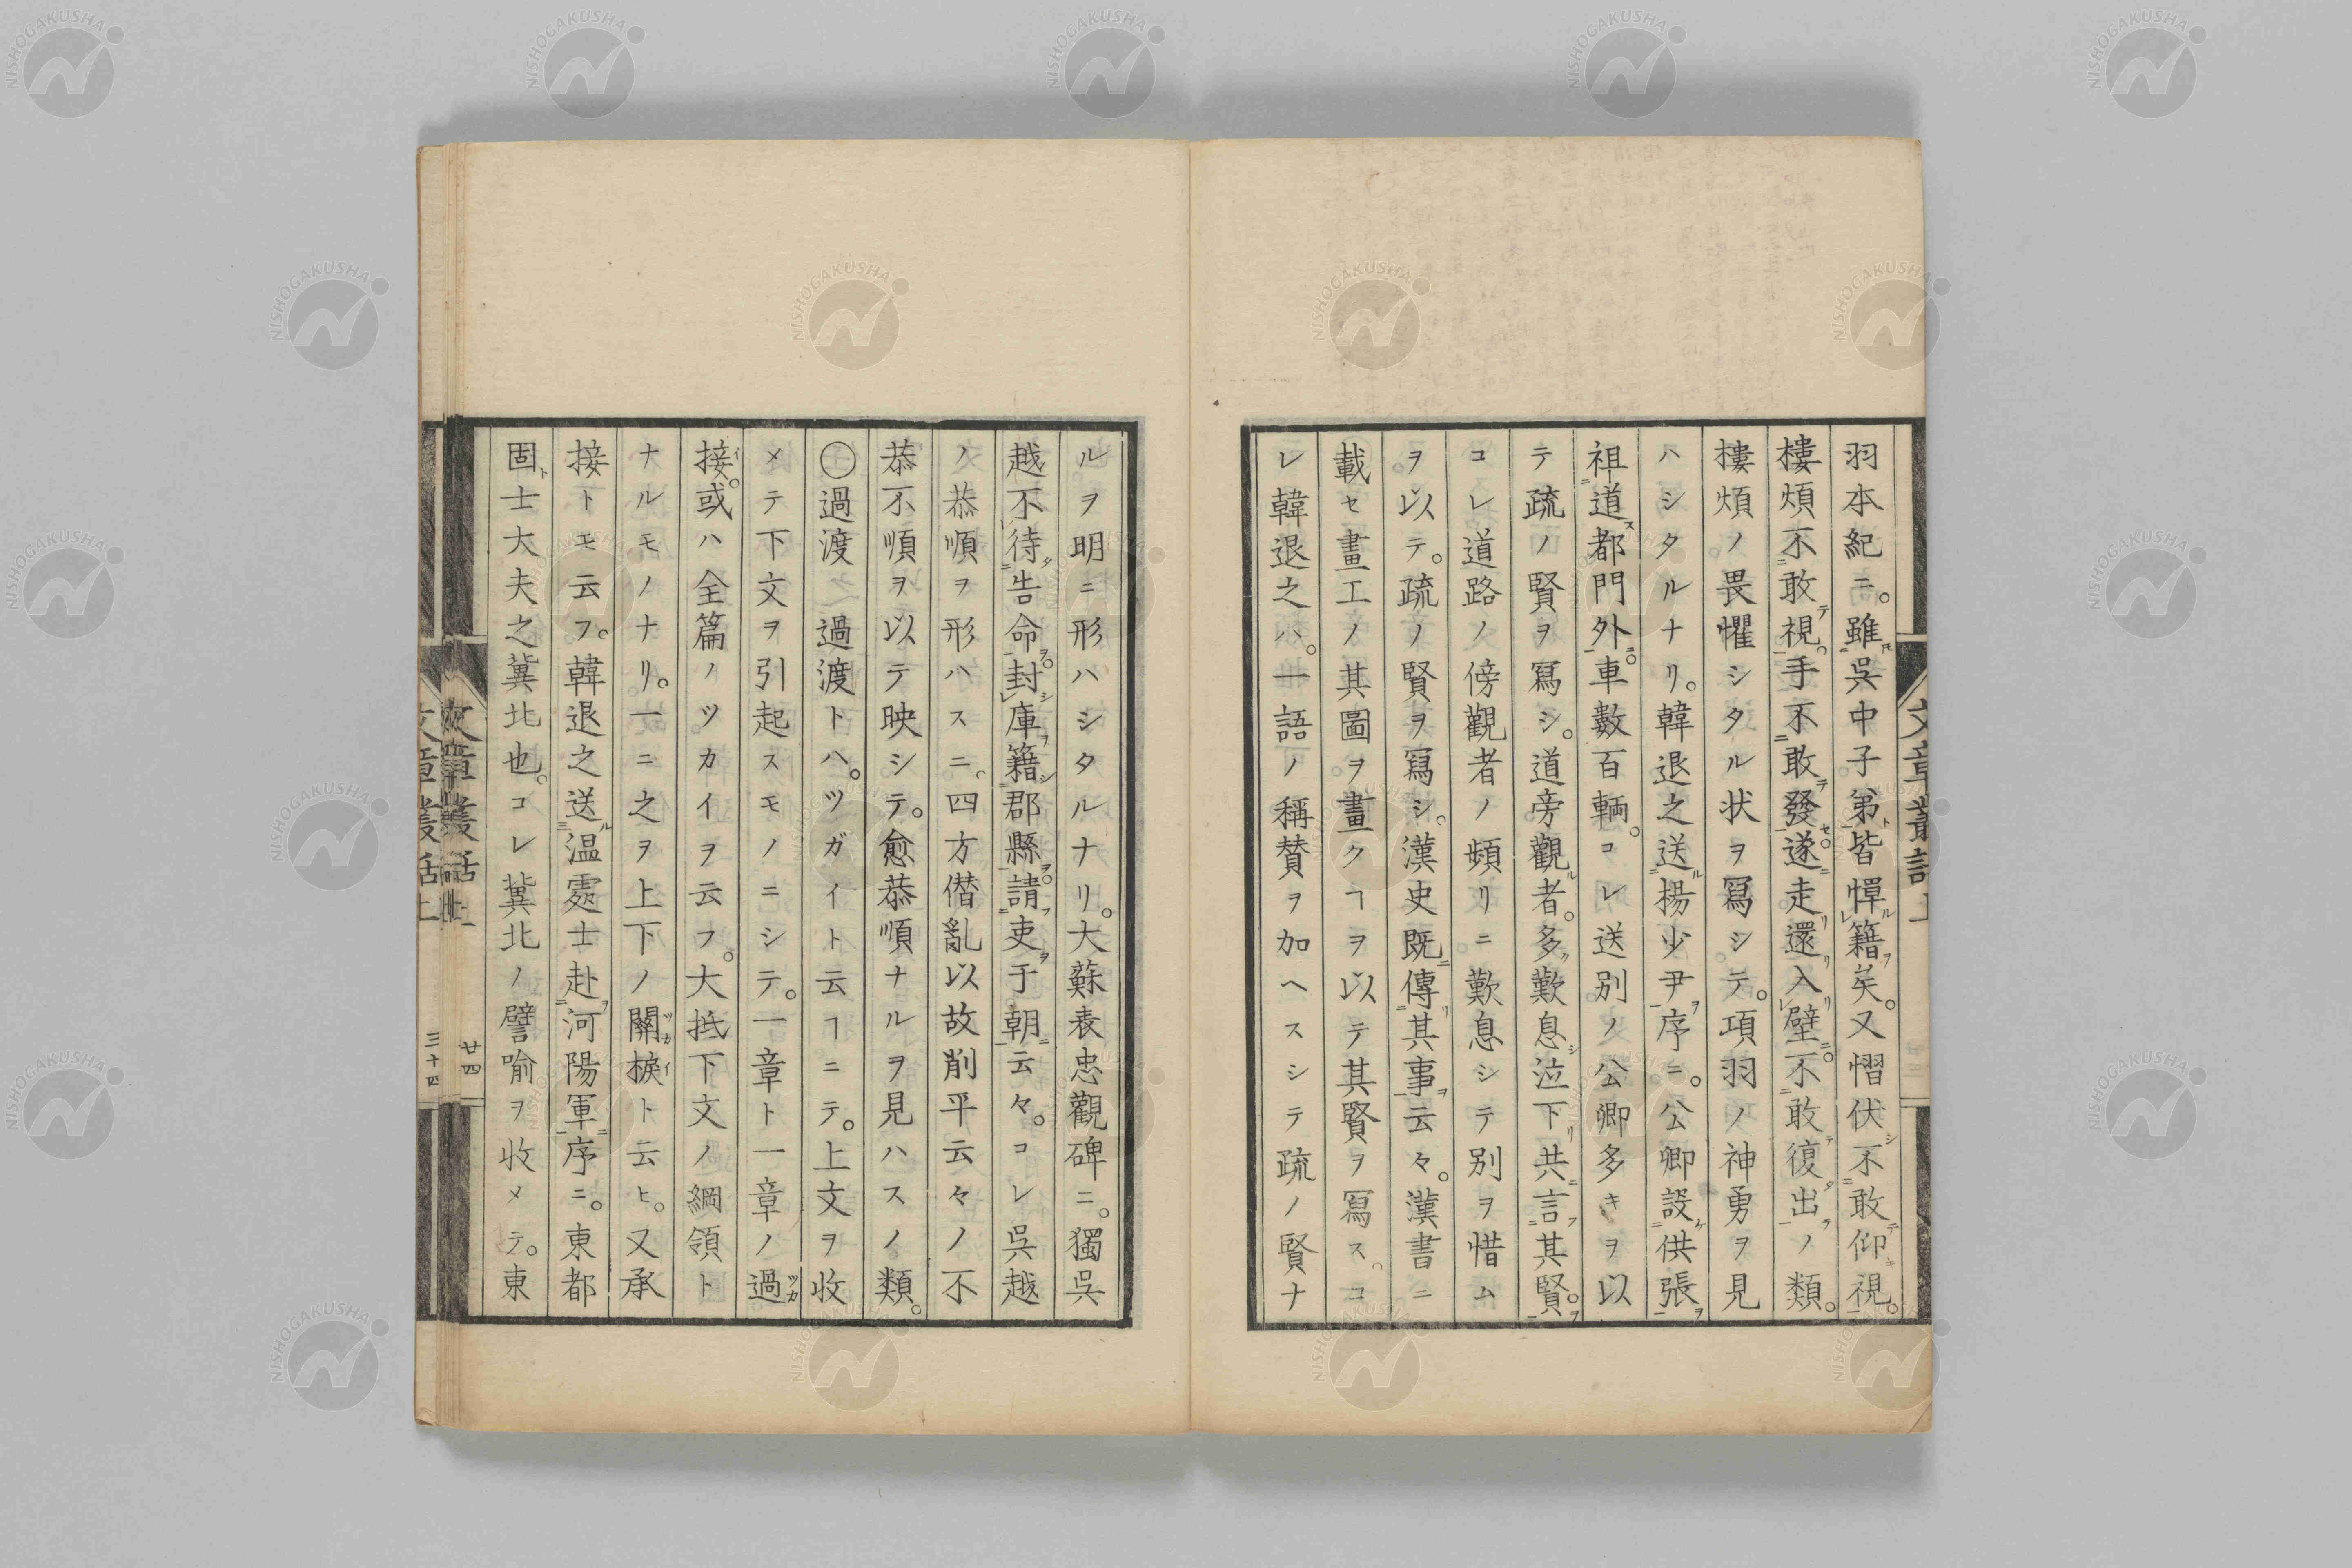 羽本紀ニ。雖呉中子弟皆憚籍矣。又慴伏不敢仰視。
樓煩不敢視手不敢發遂走還入壁不敢復出ノ類。
樓煩ノ畏懼シタル状ヲ寫シテ。項羽ノ神勇ヲ見
ハシタルナリ。韓退之送楊少尹序ニ。公卿設供張
祖道都門外車數百輌。コレ送別ノ公卿多キヲ以
テ疏ノ賢ヲ寫シ。道旁觀者。多歎息泣下共言其賢。
コレ道路ノ傍觀者ノ頻リニ歎息シテ別ヲ惜ム
ヲ以テ。疏ノ賢ヲ寫シ。漢史既傳其事云々。漢書ニ
載セ畫工ノ其圖ヲ畫クヿヲ以テ其賢ヲ寫ス。コ
レ韓退之ハ。一語ノ稱賛ヲ加ヘスシテ疏ノ賢ナ
ルヲ明ニ形ハシタルナリ。大蘇表忠觀碑ニ。獨呉
越不待告命。封庫籍郡縣。請吏于朝云々。コレ呉越
ノ恭順ヲ形ハスニ。四方僣亂以故削平云々ノ不
恭不順ヲ以テ映シテ。愈恭順ナルヲ見ハスノ類。
〇過渡 過渡トハ。ツガイト云ヿニテ。上文ヲ收
メテ下文ヲ引起スモノニシテ。一章ト一章ノ過
接。或ハ全篇ノツカイヲ云フ。大抵下文ノ綱領ト
ナルモノナリ。一ニ之ヲ上下ノ關棙ト云ヒ。又承
接トモ云フ。韓退之送温處士赴河陽軍序ニ。東都
固士大夫之冀北也。コレ冀北ノ譬喻ヲ收メテ。東
文章叢話上
廿四
文章叢話上
三十四